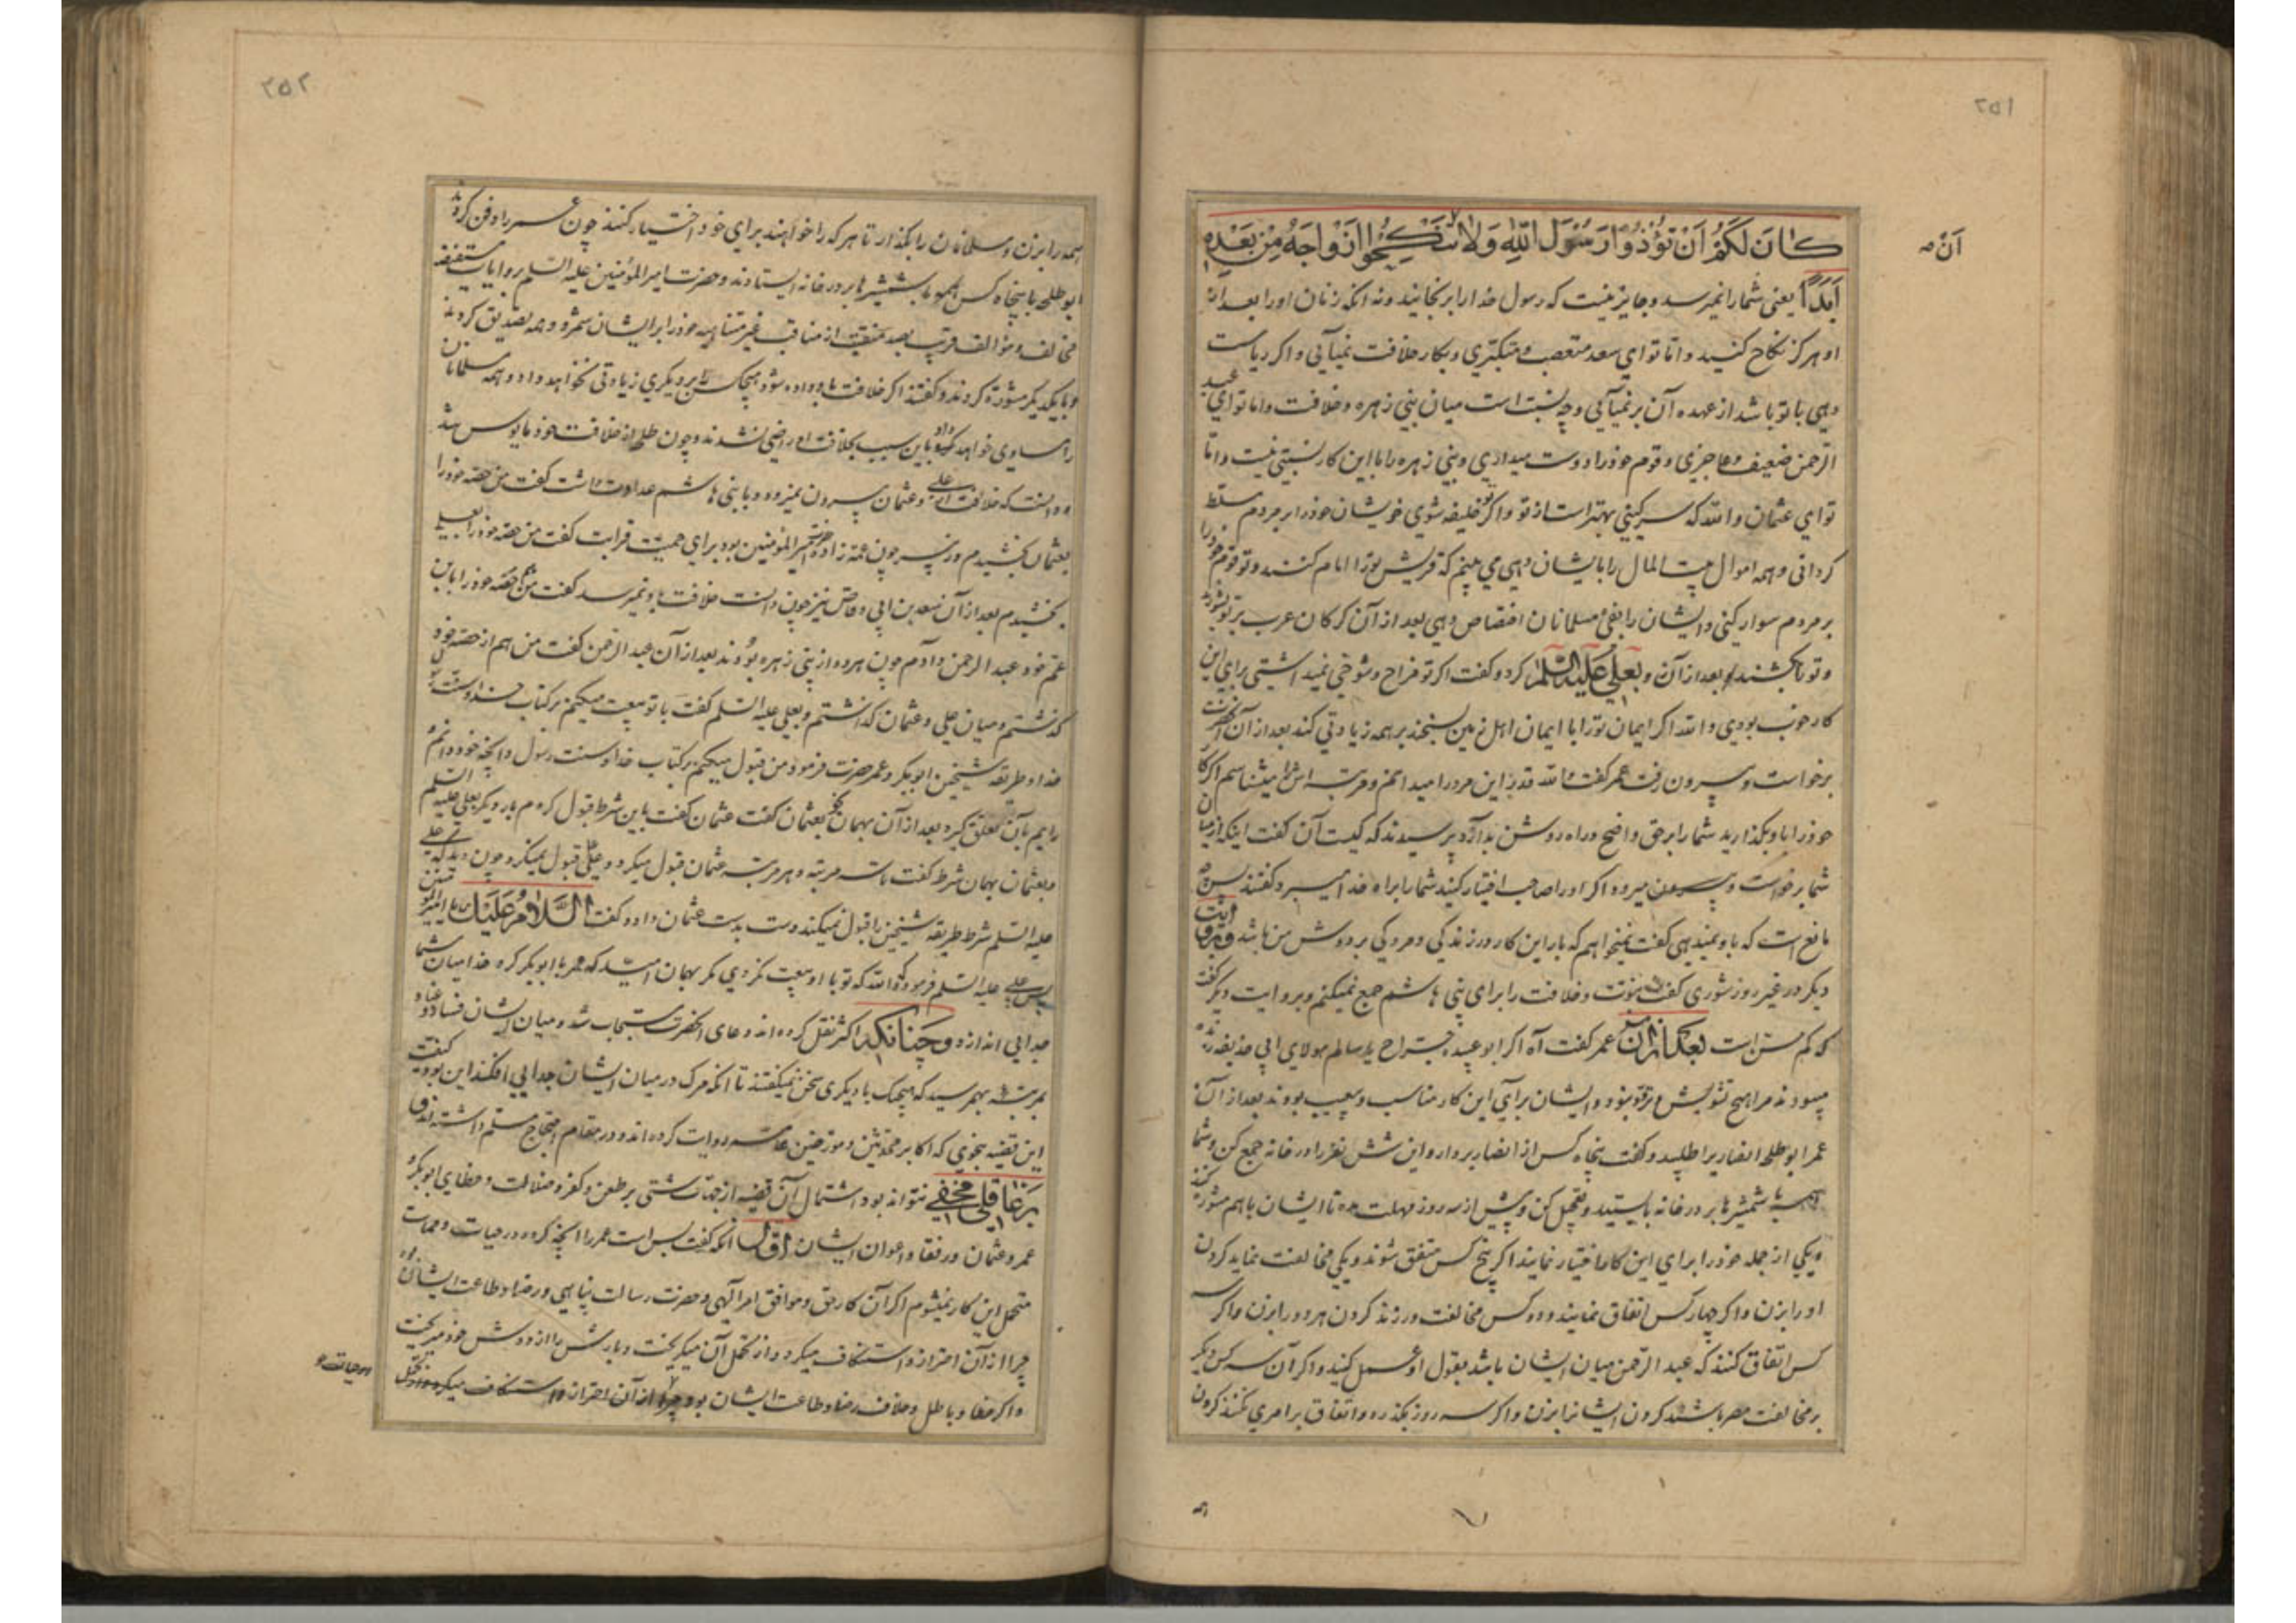 ۲۵۱
آن
کان لکم ان تؤذوا رسول الله ولا ان تنکحوا ازواجه من بعده
ابداً یعنی شما را نمیرسد و جایز نیست که رسول خدا را برنجانید و نه انکه زنان او را بعد از
او هرکز نکاح کنید و اما تو ای سعد متعصب و متکبری و بکار خلافت نمیآئی و اکر ریاست
دهی با تو باشد از عهده آن برنمیآئی و چه نسبت است میان بنی زهره و خلافت و اما تو ای عبد
الرحمن ضعیف و عاجزی و قوم خود را دوست میداری و بنی زهره را با این کار نسبتی نیست و اما
تو ای عثمان والله که سرکینی بهتر است از تو و اکر خلیفه شوی خویشان خود را بر مردم مسلط
کردانی و همه اموال بیت المال را بایشان دهی می بینم که قریش تو را امام کنند و تو قوم خود را
بر مردم سوار کنی و ایشان را بفئ مسلمانان اختصاص دهی بعد از آن کرکان عرب بر تو بشورند
و تو را بکشند بعد از آن رو بعلی علیه السلم کرد و کفت اکر تو مزاح و شوخی نمیداشتی برای این
کار خوب بودی والله اکر ایمان تو را با ایمان اهل زمین بسنجند بر همه زیادتی کند بعد از آن آنحضرت
برخواست و بیرون رفت عمر کفت والله قدر این مرد را میدانم و مرتبه اش را میشناسم اکر کار
خود را باو بکذارید شما را بر حق واضح و راه روشن بدارد پرسیدند که کیست آن کفت اینکه از میان
شما برخواست و بیرون میرود اکر او را صاحب اختیار کنید شما را براه خدا میبرد کفتند پس چه
مانع است که باو نمیدهی کفت نمیخواهم که بار این کار در زندکی و مردکی بر دوش من باشد و بروایت
دیکر در غیر روز شوری کفت نبوت و خلافت را برای بنی هاشم جمع نمیکنم و بروایت دیکر کفت
که کم سن است بعد از آن عمر کفت آه اکر ابو عبیده جراح یا سالم مولای ابی حذیفه زنده
میبودند مرا هیچ تشویش و تردد نبود و ایشان برای این کار مناسب و بیعیب بودند بعد از آن
عمر ابو طلحه انصاری را طلبید و کفت پنجاه کس از انصار بردار و این شش نفر را در خانه جمع کن و شما
همه با شمشیرها بر در خانه بایستید و تعجیل کن و بیش از سه روز مهلت مده تا ایشان باهم مشورت کنند
و یکی از جمله خود را برای این کار اختیار نمایند اکر پنج کس متفق شوند و یکی مخالفت نماید کردن
او را بزن و اکر چهار کس اتفاق نمایند و دو کس مخالفت ورزند کردن هر دو را بزن و اکر سه
کس اتفاق کنند که عبد الرحمن میان ایشان باشد بقول او عمل کنید و اکر آن سه کس دیکر
بر مخالفت مصر باشند کردن ایشانرا بزن و اکر سه روز بکذرد و اتفاق بر امری نکنند کردن
همه
۲۵۲
همه را بزن و مسلمانان را بکذار تا هر که را خواهند برای خود اختیار کنند چون عمر را دفن کردند
ابو طلحه با پنجاه کس همه با شمشیرها بر در خانه ایستادند و حضرت امیر المؤمنین علیه السلم بروایات مستفیضه
مخالف و مؤالف قریب بصد منقبت از مناقب غیر متناهیه خود را بر ایشان شمرد و همه تصدیق کردند
و با یکدیکر مشورة کردند و کفتند اکر خلافت باو داده شود هیچکس را بر دیکری زیادتی نخواهد داد و همه مسلمانان
را مساوی خواهد کرد باین سبب بخلافت او راضی نشدند و چون طلحه از خلافت خود مایوس شد
و دانست که خلافت از علی و عثمان بیرون نمیرود و با بنی هاشم عداوت داشت کفت من حصه خود را
بعثمان بخشیدم و زبیر چون عمه زاده حضرت امیر المؤمنین بود برای حمیت قرابت کفت من حصه خود را بعلی
بخشیدم بعد از آن سعد بن ابی وقاص نیز چون دانست خلافت باو نمیرسد کفت من هم حصه خود را بابن
عم خود عبد الرحمن دادم چون هر دو از بنی زهره بودند بعد از آن عبد الرحمن کفت من هم از حصه خود
کذشتم و میان علی و عثمان کذاشتم و بعلی علیه السلم کفت با تو بیعت میکنم بر کتاب خدا و سنت رسول
خدا و طریقه شیخین ابو بکر و عمر حضرت فرمود من قبول میکنم بر کتاب خدا و سنت رسول و آنچه خود دانم و
رایم بآن تعلق کیرد بعد از آن بهمان نحو بعثمان کفت عثمان کفت باین شرط قبول کردم بار دیکر بعلی علیه السلم
و بعثمان بهمان شرط کفت تا سه مرتبه و هر مرتبه عثمان قبول میکرد و علی قبول نمیکرد چون دید که علی
علیه السلم شرط طریقه شیخین را قبول نمیکند دست بدست عثمان داد و کفت السلام علیک یا امیر المؤمنین
پس علی علیه السلم فرمود والله که تو با او بیعت نکردی مکر بهمان امید که عمر با ابو بکر کرد خدا میان شما
جدایی اندازد و چنانکه اکثر نقل کرده اند دعای آنحضرت مستجاب شد و میان ایشان فساد و عناد
بمرتبه بهمرسید که هیچیک با دیکری سخن نمیکفتند تا انکه مرک در میان ایشان جدایی افکند این بود کیفیت
این قضیه بنحوی که اکابر محدثین و مورخین عامه روایت کرده اند و در مقام احتجاج مسلم داشته اند و
بر عاقلی مخفی نتواند بود اشتمال آن قضیه از جهات شتی بر طعن و کفر و ضلالت و خطای ابو بکر و
عمر و عثمان و رفقا و اعوان ایشان اول انکه کفت بس است عمر را انچه کرده در حیات و ممات
متحمل این کار نمیشوم اکر آن کار حق و موافق امر الهی و حضرت رسالت پناهی و رضا و طاعت ایشان بود
چرا از آن احتراز و استنکاف میکرد و از تحمل آن میکریخت و بارش را از دوش خود میریخت
و اکر خطا و باطل و خلاف رضا و طاعت ایشان بود چرا از آن احتراز و استنکاف میکرد
در حیات